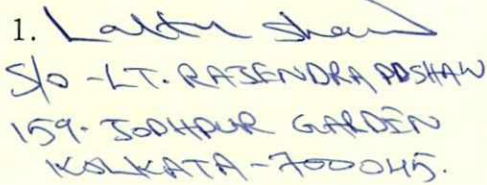 1. Lalit Shaw
S/o - LT. RAJENDRA PD SHAW
159. JODHPUR GARDEN
KOLKATA - 700045.